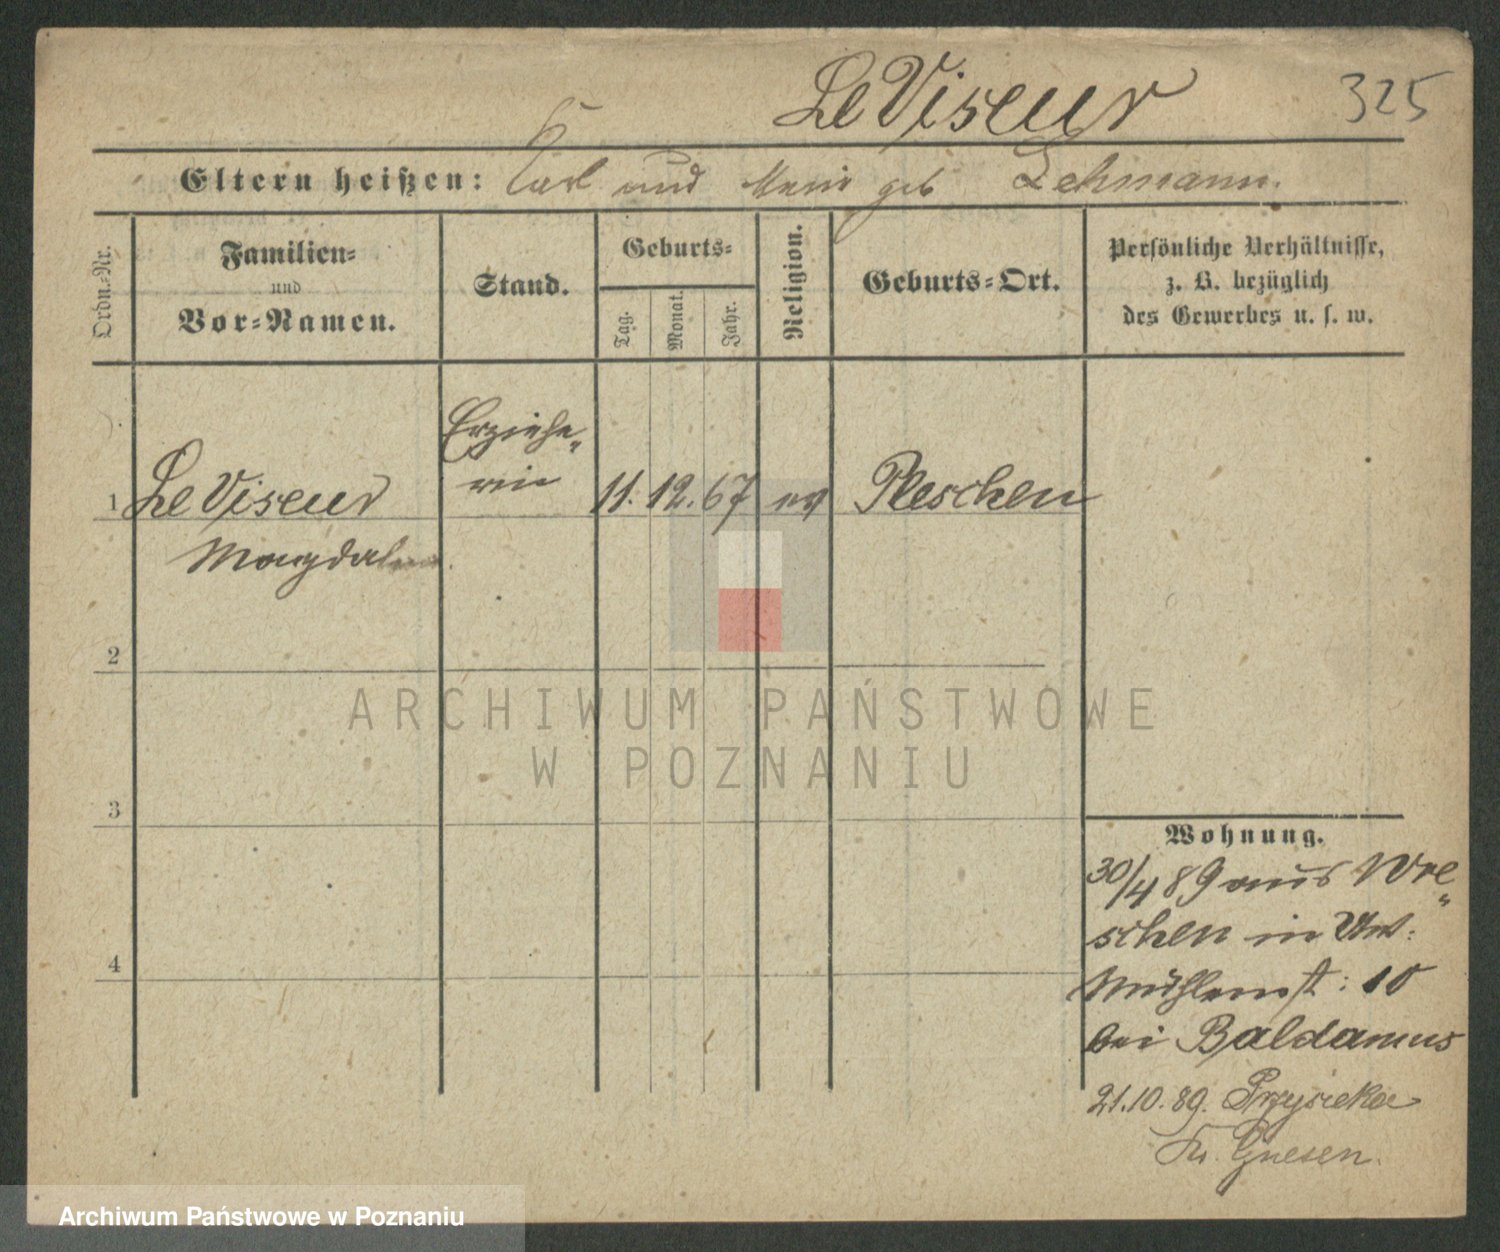 Le Viseur 325
Eltern heißen: Carl und Marie geb Lehmann.
Ordn.-Nr.
Familien-
und
Vor-Namen.
Stand.
Geburts-
Tag.
Monat.
Jahr.
Religion.
Geburts-Ort.
Persönliche Verhältnisse,
z. B. bezüglich
des Gewerbes u. s. w.
Erziehe„
rin
1 Le Viseur 11. 12. 67 ev Pleschen
Magdalena
2
3
4
Wohnung.
30/4 89 aus Wre„
schen in Unt:
Mühlenst: 10
bei Baldamus
21.10.89. Przysieka
Kr. Gnesen.
ARCHIWUM PAŃSTWOWE
W POZNANIU
Archiwum Państwowe w Poznaniu